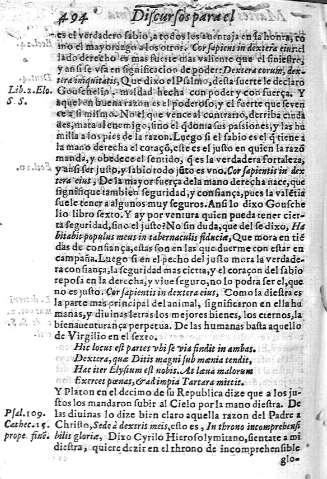 494
Discursos para el
es el verdadero sabio, a todos los aventaja en la honra, co
mo el mayorazgo a los otros. Cor sapientis in dextera eius, el
lado derecho es mas fuerte mas valiente que el siniestro,
y ansi se vsa en significacion de poder: Dextera eorum, dex
tera iniquitatis, Que dixo el Psalmo, desta suerte le declarò
Lib. 2. Elo.
Gouschelio, maldad hecha con poder y con fuerça. Y
S. S.
aquel en buena razon es el poderoso, y el fuerte que vence
a si mismo. No el que vence al contrario, derriba ciuda
des, mata al enemigo, sino el q̃ doma sus passiones, y las hu
milla a los pies de la razon. Luego si el sabio es el q̃ tiene a
la mano derecha el coraçõ, este es el justo en quien la razõ
manda, y obedece el sentido, q̃ es la verdadera fortaleza,
y ansi ser justo, y sabio todo junto es vno. Cor sapientis in dex
tera eius, De la mayor fuerça de la mano derecha nace, que
signifique tambien seguridad, y confiança, pues la valẽtia
suele tener a algunos muy seguros. Ansi lo dixo Gousche
lio libro sexto. Y ay por ventura quien pueda tener cier-
ta seguridad, sino el justo? No sin duda, que del se dixo, Ha
bitabit populus meus in tabernaculis fiduciæ, Que mora en tiẽ
das de confiança, estas son en las que duerme con estar en
campaña. Luego si en el pecho del justo mora la verdade-
ra confiança, la seguridad mas cierta, y el coraçon del sabio
reposa en la derecha, y viue seguro, no lo podra ser el, que
no es justo. Cor sapientis in dextera eius, Como la diestra es
la parte mas principal del animal, significaron en ella hu
manas, y diuinas letras los mejores bienes, los eternos, la
bienauenturança perpetua. De las humanas basta aquello
de Virgilio en el sexto.
Hic locus est partes vbi se via findit in ambas.
Dextera, quæ Ditis magni sub mænia tendit,
Hac iter Elysium est nobis. At læua malorum
Exercet pœnas, & ad impia Tartara mittit.
Y Platon en el decimo de su Republica dize que a los ju-
stos los mandaron subir al Cielo por la mano diestra. De
Psal. 109.
las diuinas lo dize bien claro aquella razon del Padre a
Cathec. 14.
Christo, Sede à dextris meis, esto es, In throno incomprehensi
prope finẽ.
bilis gloriæ, Dixo Cyrilo Hierosolymitano, sientate a mi
diestra, quiere dezir en el throno de incomprehensible
glo-